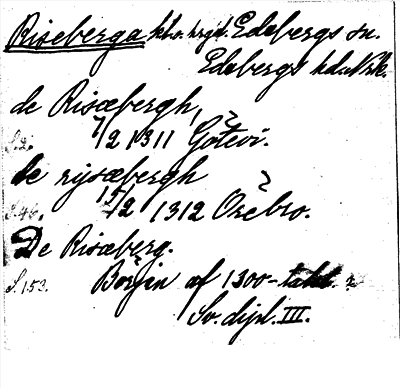 Riseberga kl. o. hrgd. Edsbergs sn.
Edsbergs hd. Nrk.
de Risæbergh,
S.2. 7/2 1311 Götevi.
de rysæbergh
S.46. 15/2 1312 Orebro.
De Risæberg.
S.153. Början af 1300-talet.
Sv. dipl. III.